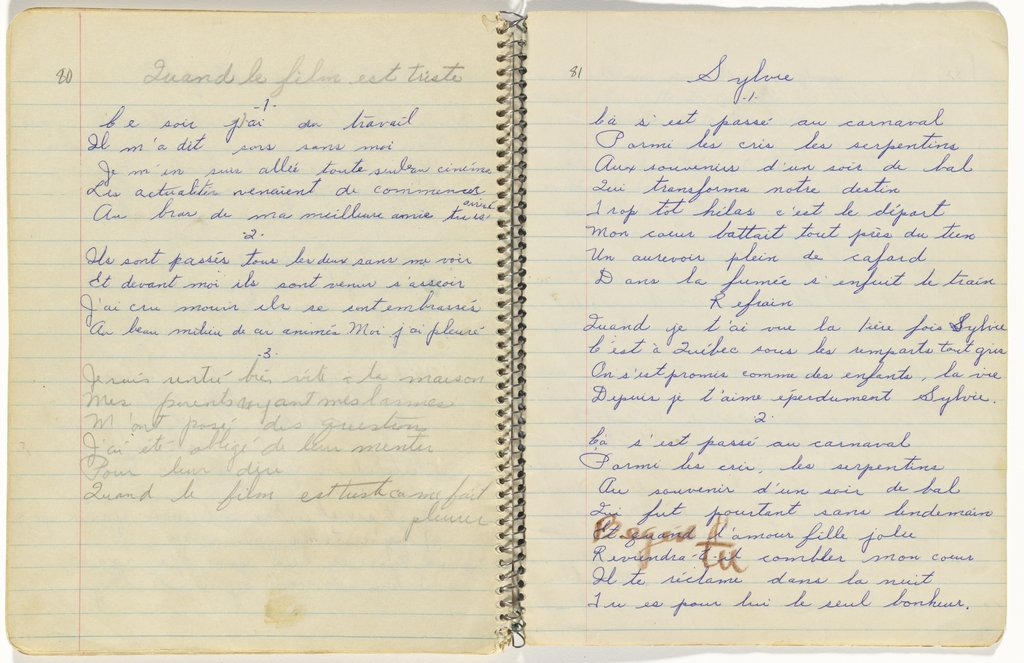 80
Quand le film est triste
-1-
Ce soir j'ai du travail
Il m'a dit sors sans moi
Je m'en suis allée toute seule au cinéma
Les actualités venaient de commencer
Au bras de ma meilleure amie tu es arrivé
-2-
Ils sont passés tous les deux sans me voir
Et devant moi ils sont venus s'asseoir
J'ai cru mourir ils se sont embrassés
Au beau milieu de animés Moi j'ai pleuré
-3-
Je suis rentré très vite à la maison
Mes parents voyant mes larmes
M'ont posé des questions
J'ai été obligé de leur menter
Pour leur dire
Quand le film est triste ca me fait
pleurer
81
Sylvie
-1-
Cà s'est passé au carnaval
Parmi les cris les serpentins
Aux souvenirs d'un soir de bal
Qui transforma notre destin
Trop tôt hélas c'est le départ
Mon coeur battait tout près du tien
Un aurevoir plein de cafard
Dans la fumée s'enfuit le train
Refrain
Quand je t'ai vue la 1ière fois Sylvie
C'est à Québec sous les remparts tout gris
On s'est promis comme des enfants, la vie
Depuis je t'aime éperdument Sylvie.
2
Cà s'est passé au carnaval
Parmi les cris, les serpentins
Au souvenir d'un soir de bal
Qui fut pourtant sans lendemain
Et quand l'amour fille jolie
Reviendra-t-il combler mon coeur
Il te réclame dans la nuit
Tu es pour lui le seul bonheur.